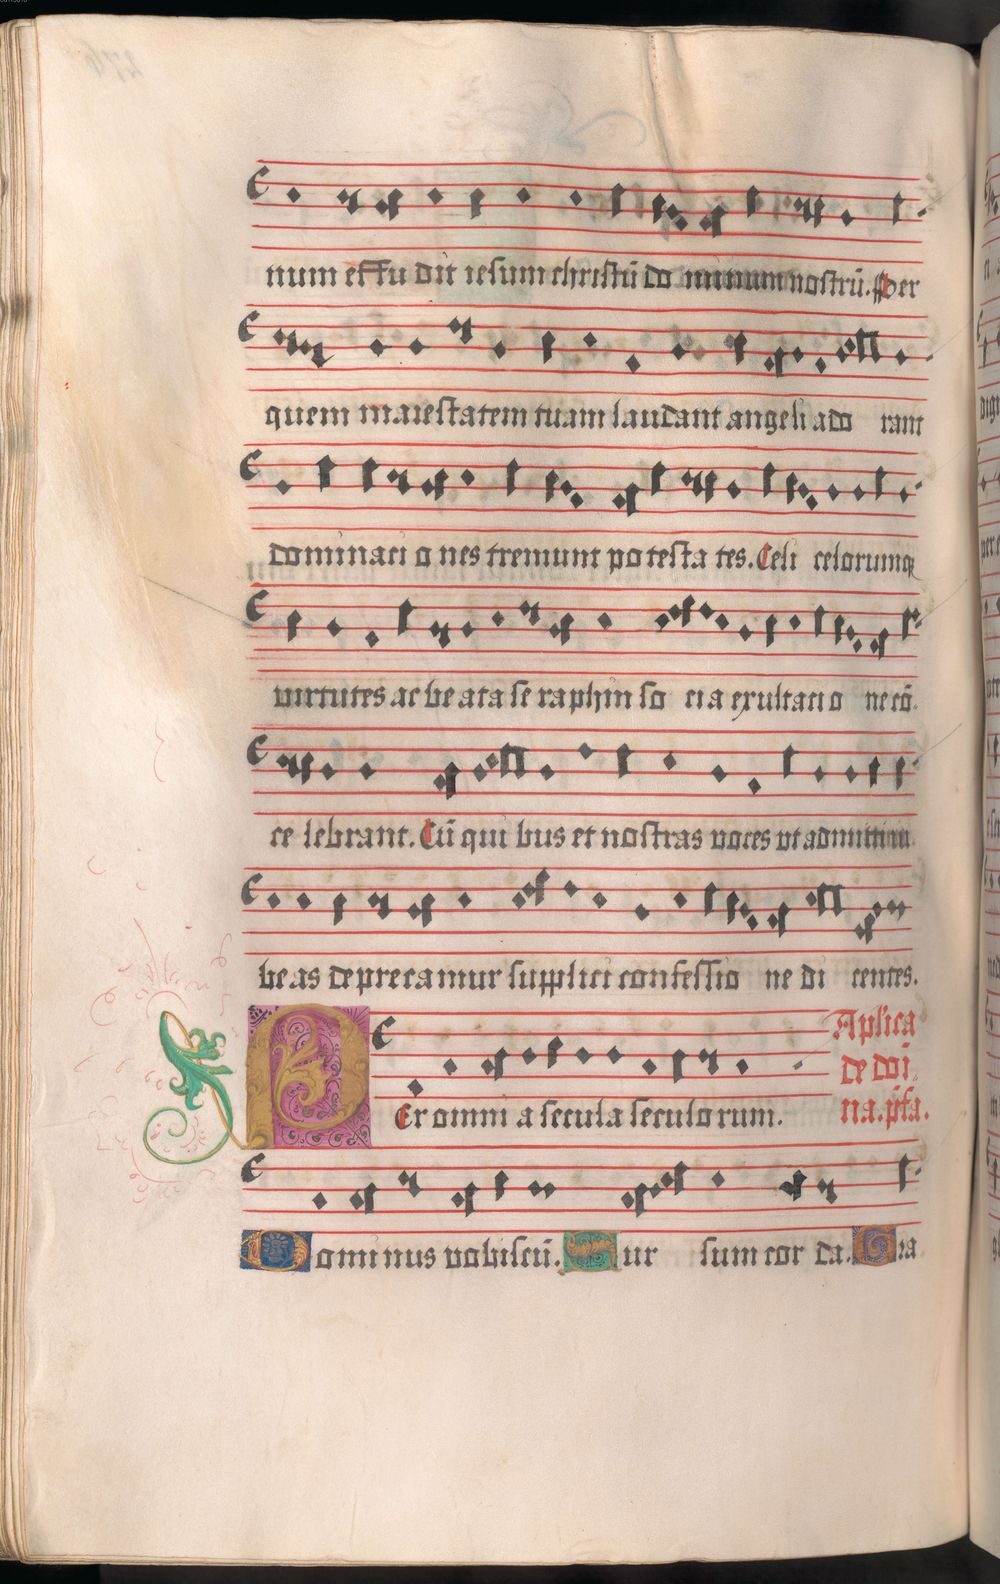 num effu dit iesum christū do minum nostrū. Per
quem maiestatem tuam laudant angeli ado rant
dominaci o nes tremunt po testa tes. Celi celorumq
virtutes ac be ata se raphin so cia exultacio ne cō
ce lebrant. Cū qui bus et nostras voces vt admitti iu
be as deprecamur supplici confessio ne di centes.
Aplica
de doi
na. pfa.
PEr omni a secula seculo rum.
Domi nus vobiscū. Sur sum cor da. Gra